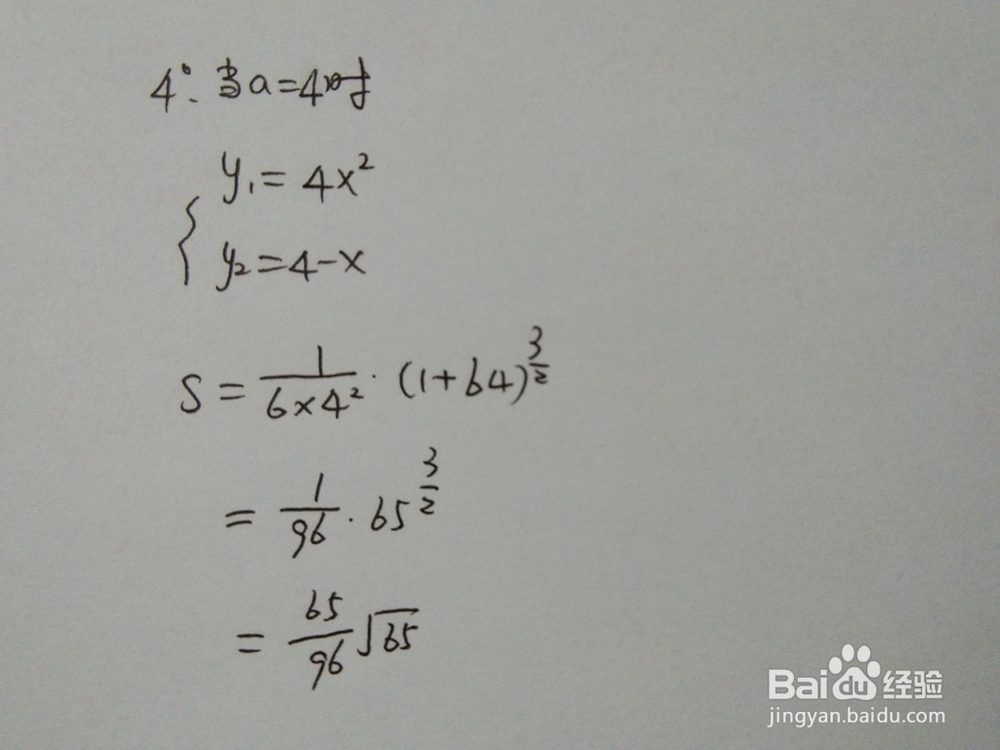 4°. 当a=4时
y₁=4x²
y₂=4-x
S=1/(6×4²)·(1+64)^(3/2)
=1/96·65^(3/2)
=65/96√65
Baidu经验
jingyan.baidu.com